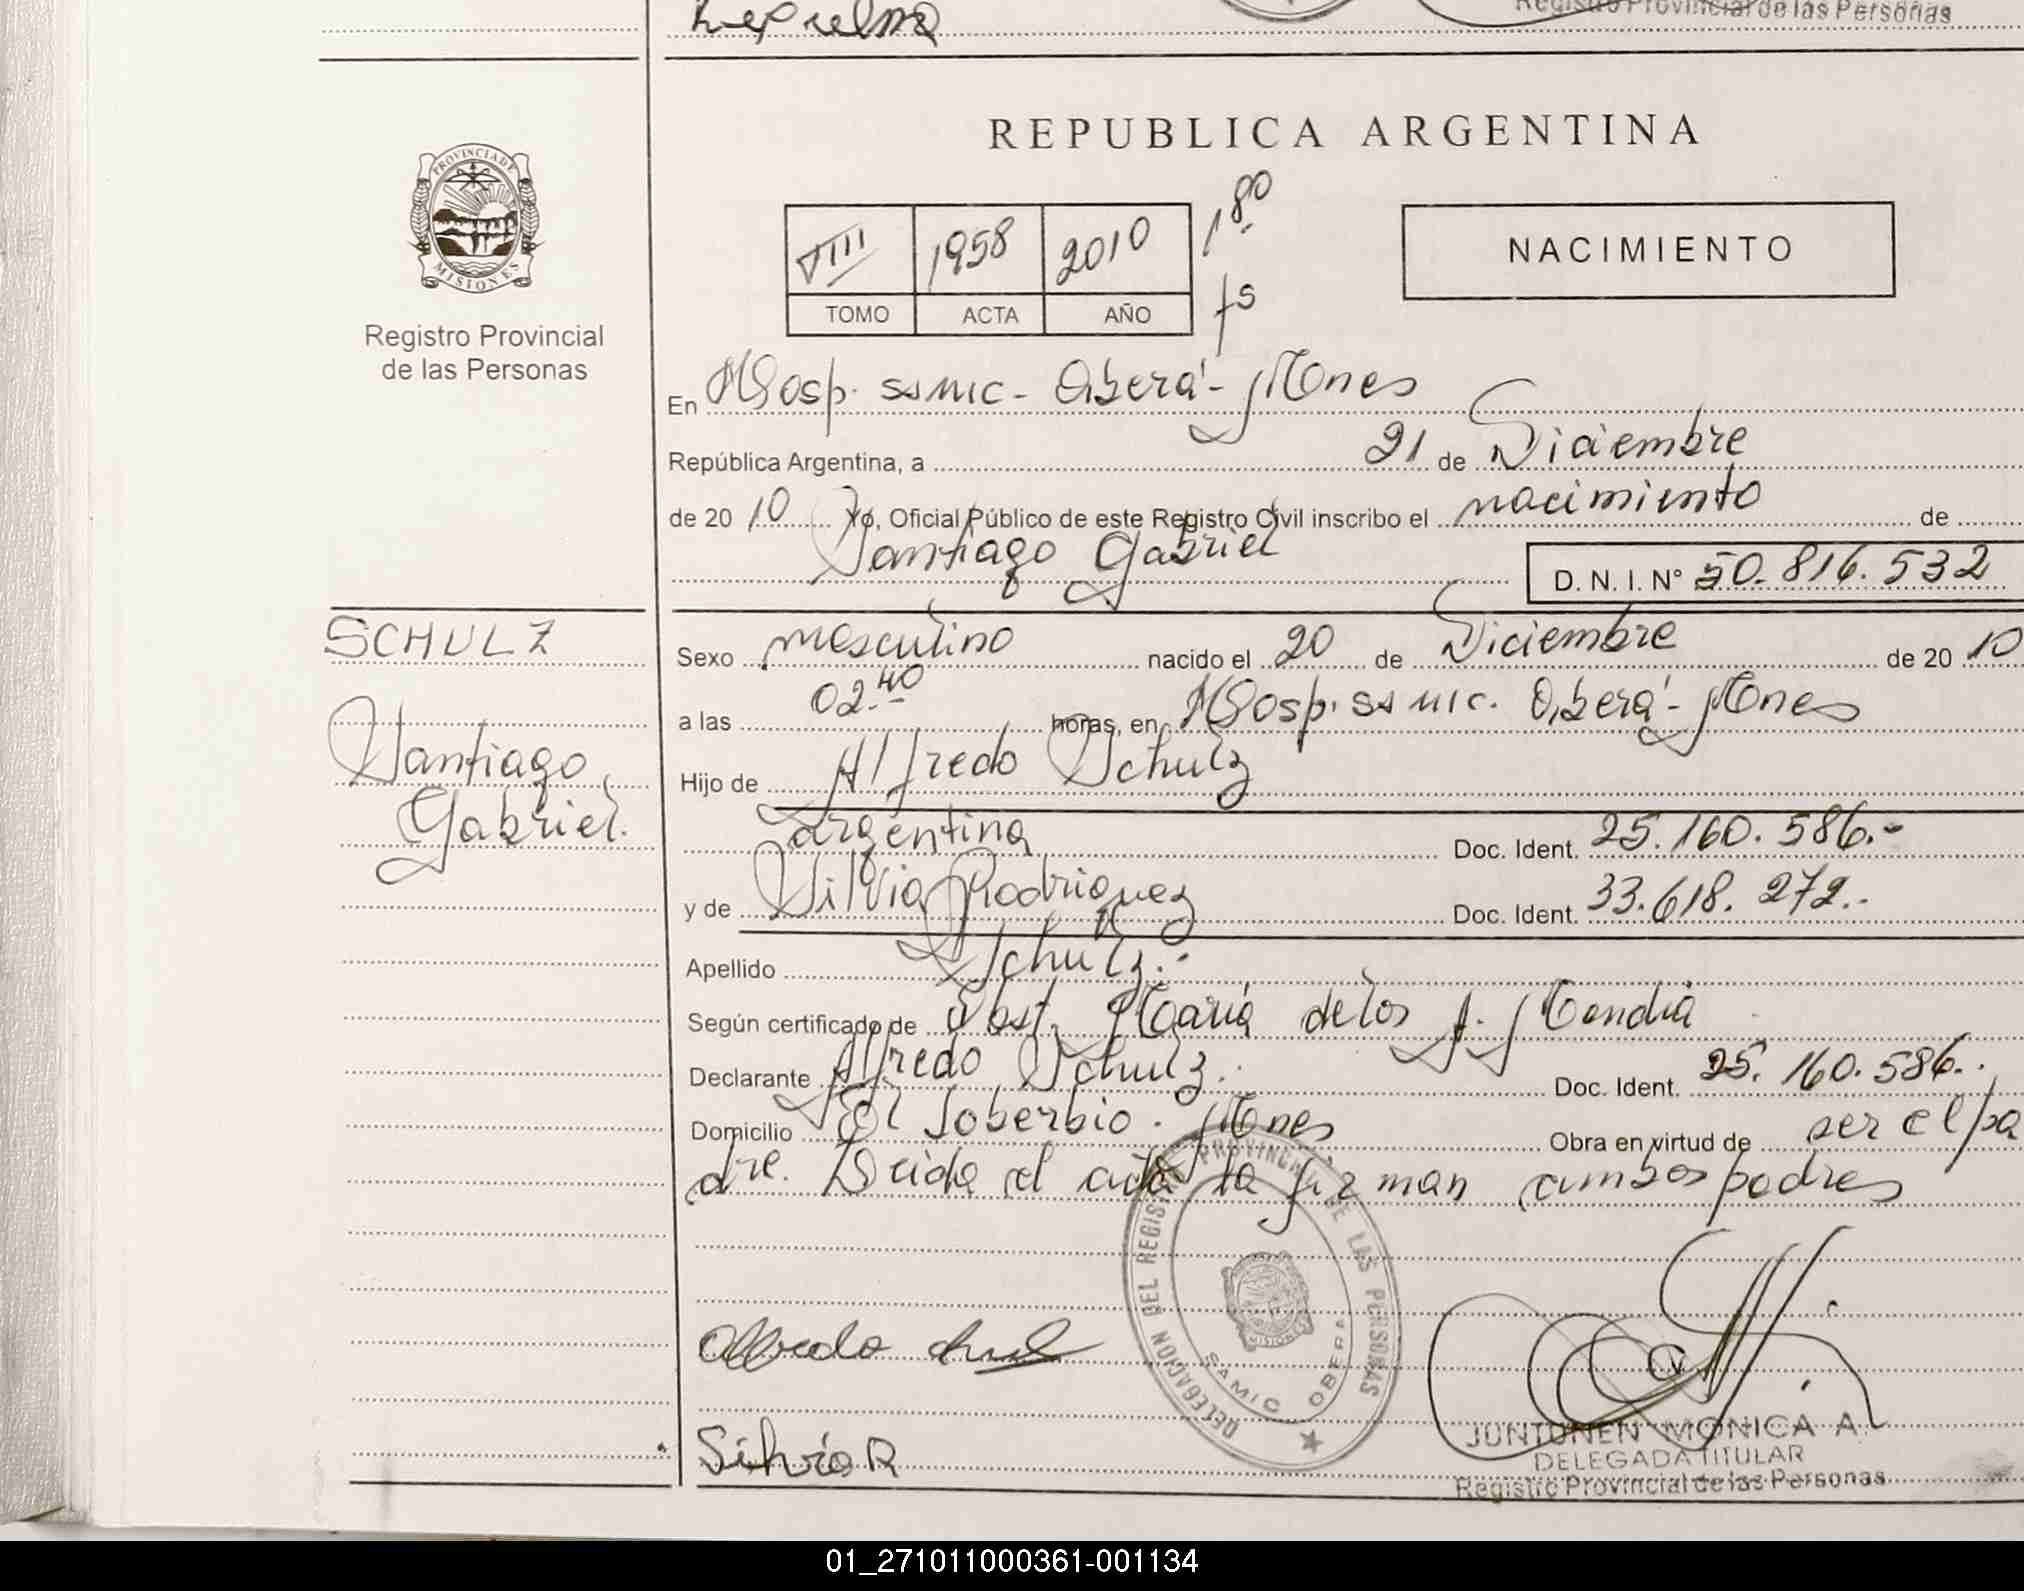 Registro Provincial de las Personas
REPUBLICA ARGENTINA
PROVINCIA DE
MISIONES
Registro Provincial
de las Personas
VIII 1958 2010 1 80
TOMO ACTA AÑO fs
NACIMIENTO
En Hosp. SAMIC - Oberá - Mnes
República Argentina, a 21 de Diciembre
de 20 10 Yo, Oficial Público de este Registro Civil inscribo el nacimiento de
Santiago Gabriel
D. N. I. N° 50.816.532
SCHULZ
Santiago
Gabriel.
Sexo masculino nacido el 20 de Diciembre de 20 10
a las 02.40 horas, en Hosp. SAMIC. Oberá - Mnes
Hijo de Alfredo Schulz
argentina Doc. Ident. 25.160.586.-
y de Silvia Rodriguez Doc. Ident. 33.618.272.-
Apellido Schulz.-
Según certificado de Obst. María de los A. Mendiá
Declarante Alfredo Schulz. Doc. Ident. 25.160.586..
Domicilio El Soberbio. Mnes Obra en virtud de ser el pa
dre. Leida el acta la firman ambos padres
DELEGACION DEL REGISTRO PROVINCIAL DE LAS PERSONAS
SAMIC OBERA
MISIONES
Alfredo
Silvia R
JUNTUNEN MONICA A.
DELEGADA TITULAR
Registro Provincial de las Personas
01_271011000361-001134